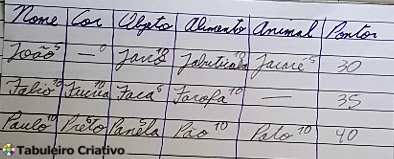 Nome Cor Objeto Alimento Animal Pontos
João 5 — 0 Jarro 10 Jabuticaba 10 Jacaré 5 30
Fabio 10 Fúcsia 10 Faca 5 Farofa 10 — 35
Paulo 10 Preto 5 Panela 5 Pão 10 Pato 10 40
Tabuleiro Criativo